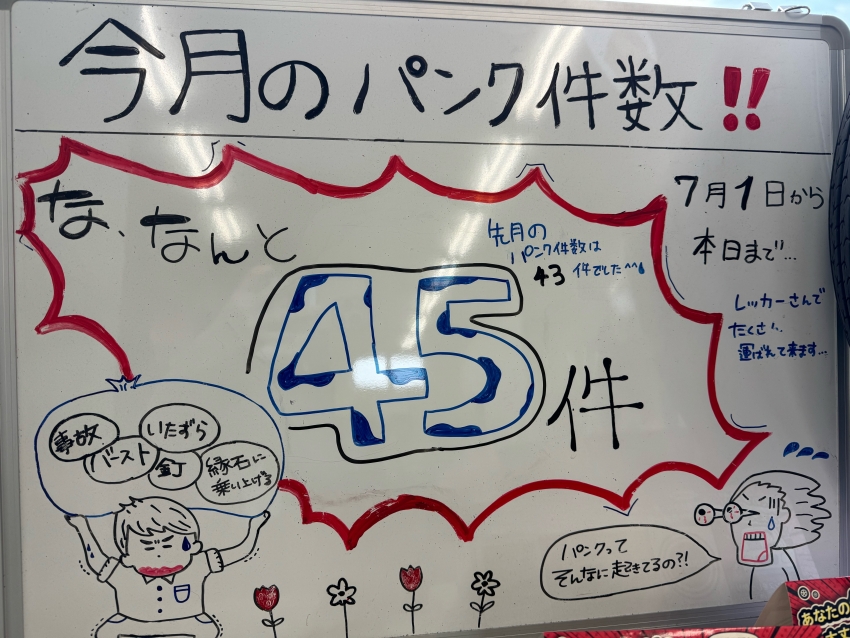 今月のパンク件数!!
な、なんと
45件
先月の
パンク件数は
43 件でした^^
7月1日から
本日まで…
レッカーさんで
たくさん
運ばれて来ます…
事故
いたずら
バースト
釘
縁石に
乗い上げる
パンクって
そんなに起きてるの?!
あなたの